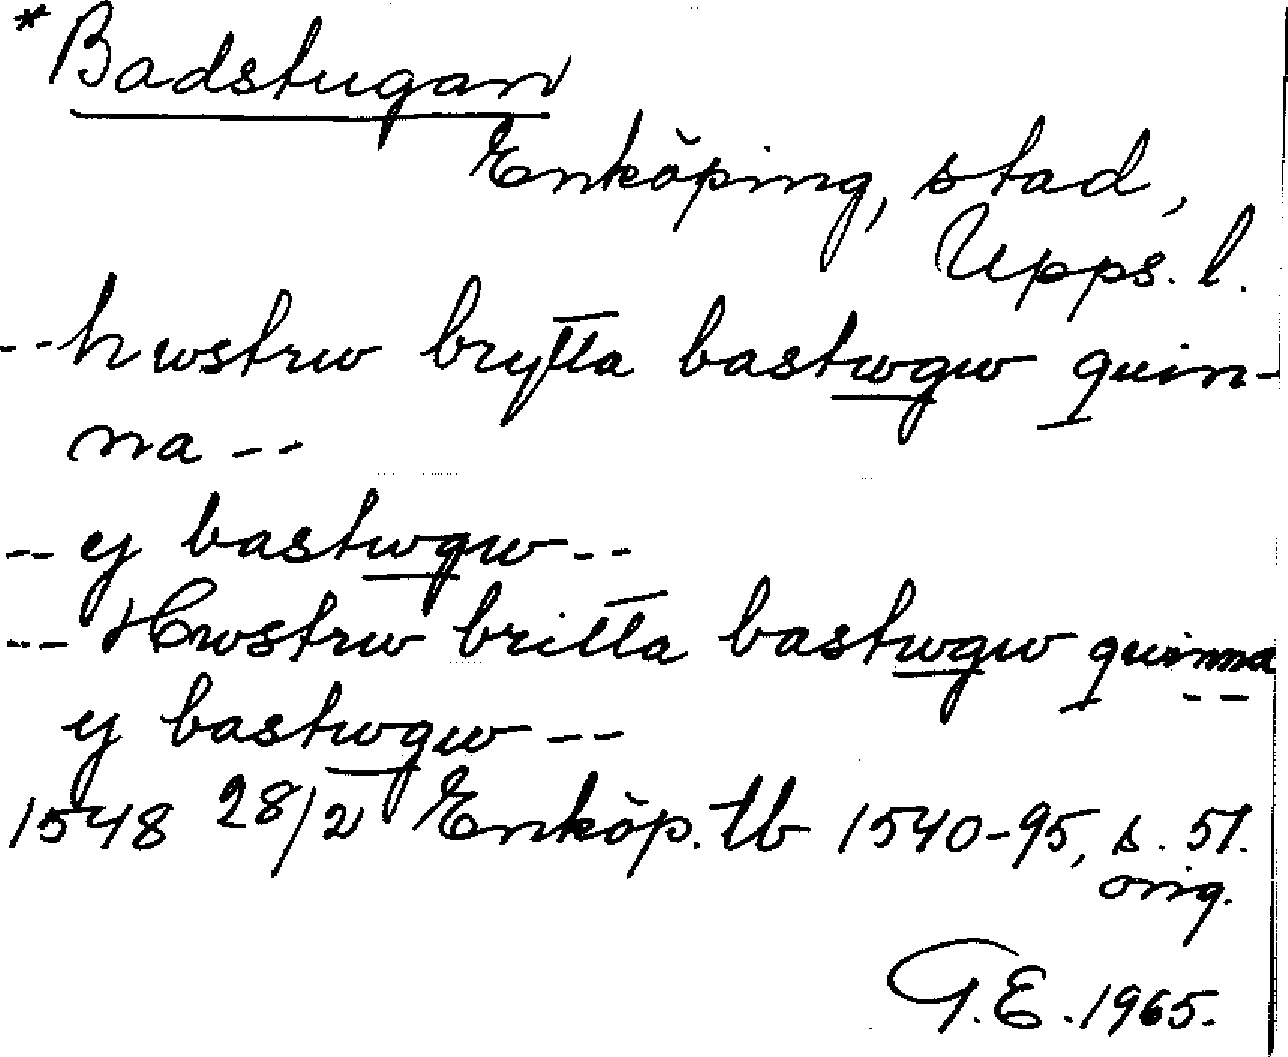 *Badstugan
Enköping, stad,
Upps. l.
-- hwstrw brytta bastwgw quin-
na --
-- y bastwgw --
-- Hwstrw britta bastwgw quinna
--
y bastwgw --
1548 28/2 Enköp. tb 1540-95, s. 51.
orig.
G.E. 1965.